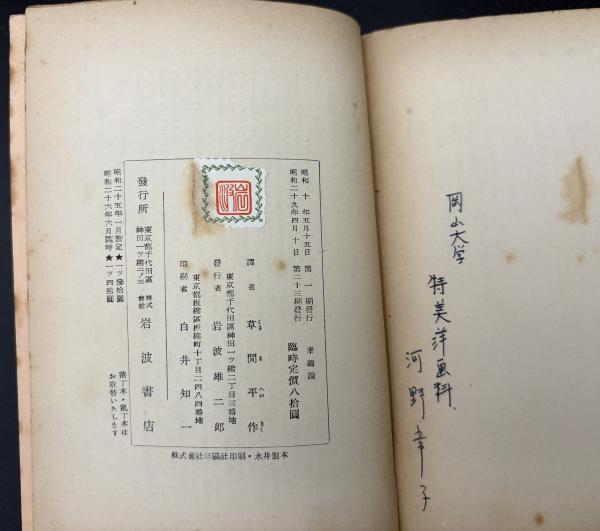 岡山大学
特美洋画科
河野幸子
幸福論
臨時定價八拾圓
昭和十年五月十五日 第一刷發行
昭和二十九年四月十日 第二十三刷發行
譯者 草間平作
くさま へいさく
東京都千代田區神田一ツ橋二丁目三番地
發行者 岩波雄二郎
東京都板橋區板橋町十丁目二四八四番地
印刷者 白井知一
岩波
發行所 東京都千代田區神田一ツ橋二ノ三 株式會社 岩波書店
株式會社三陽社印刷・永井製本
昭和二十五年一月設定 ★一ツ參拾圓
昭和二十六年六月臨時 ★一ツ四拾圓
落丁本・亂丁本は
お取替いたします